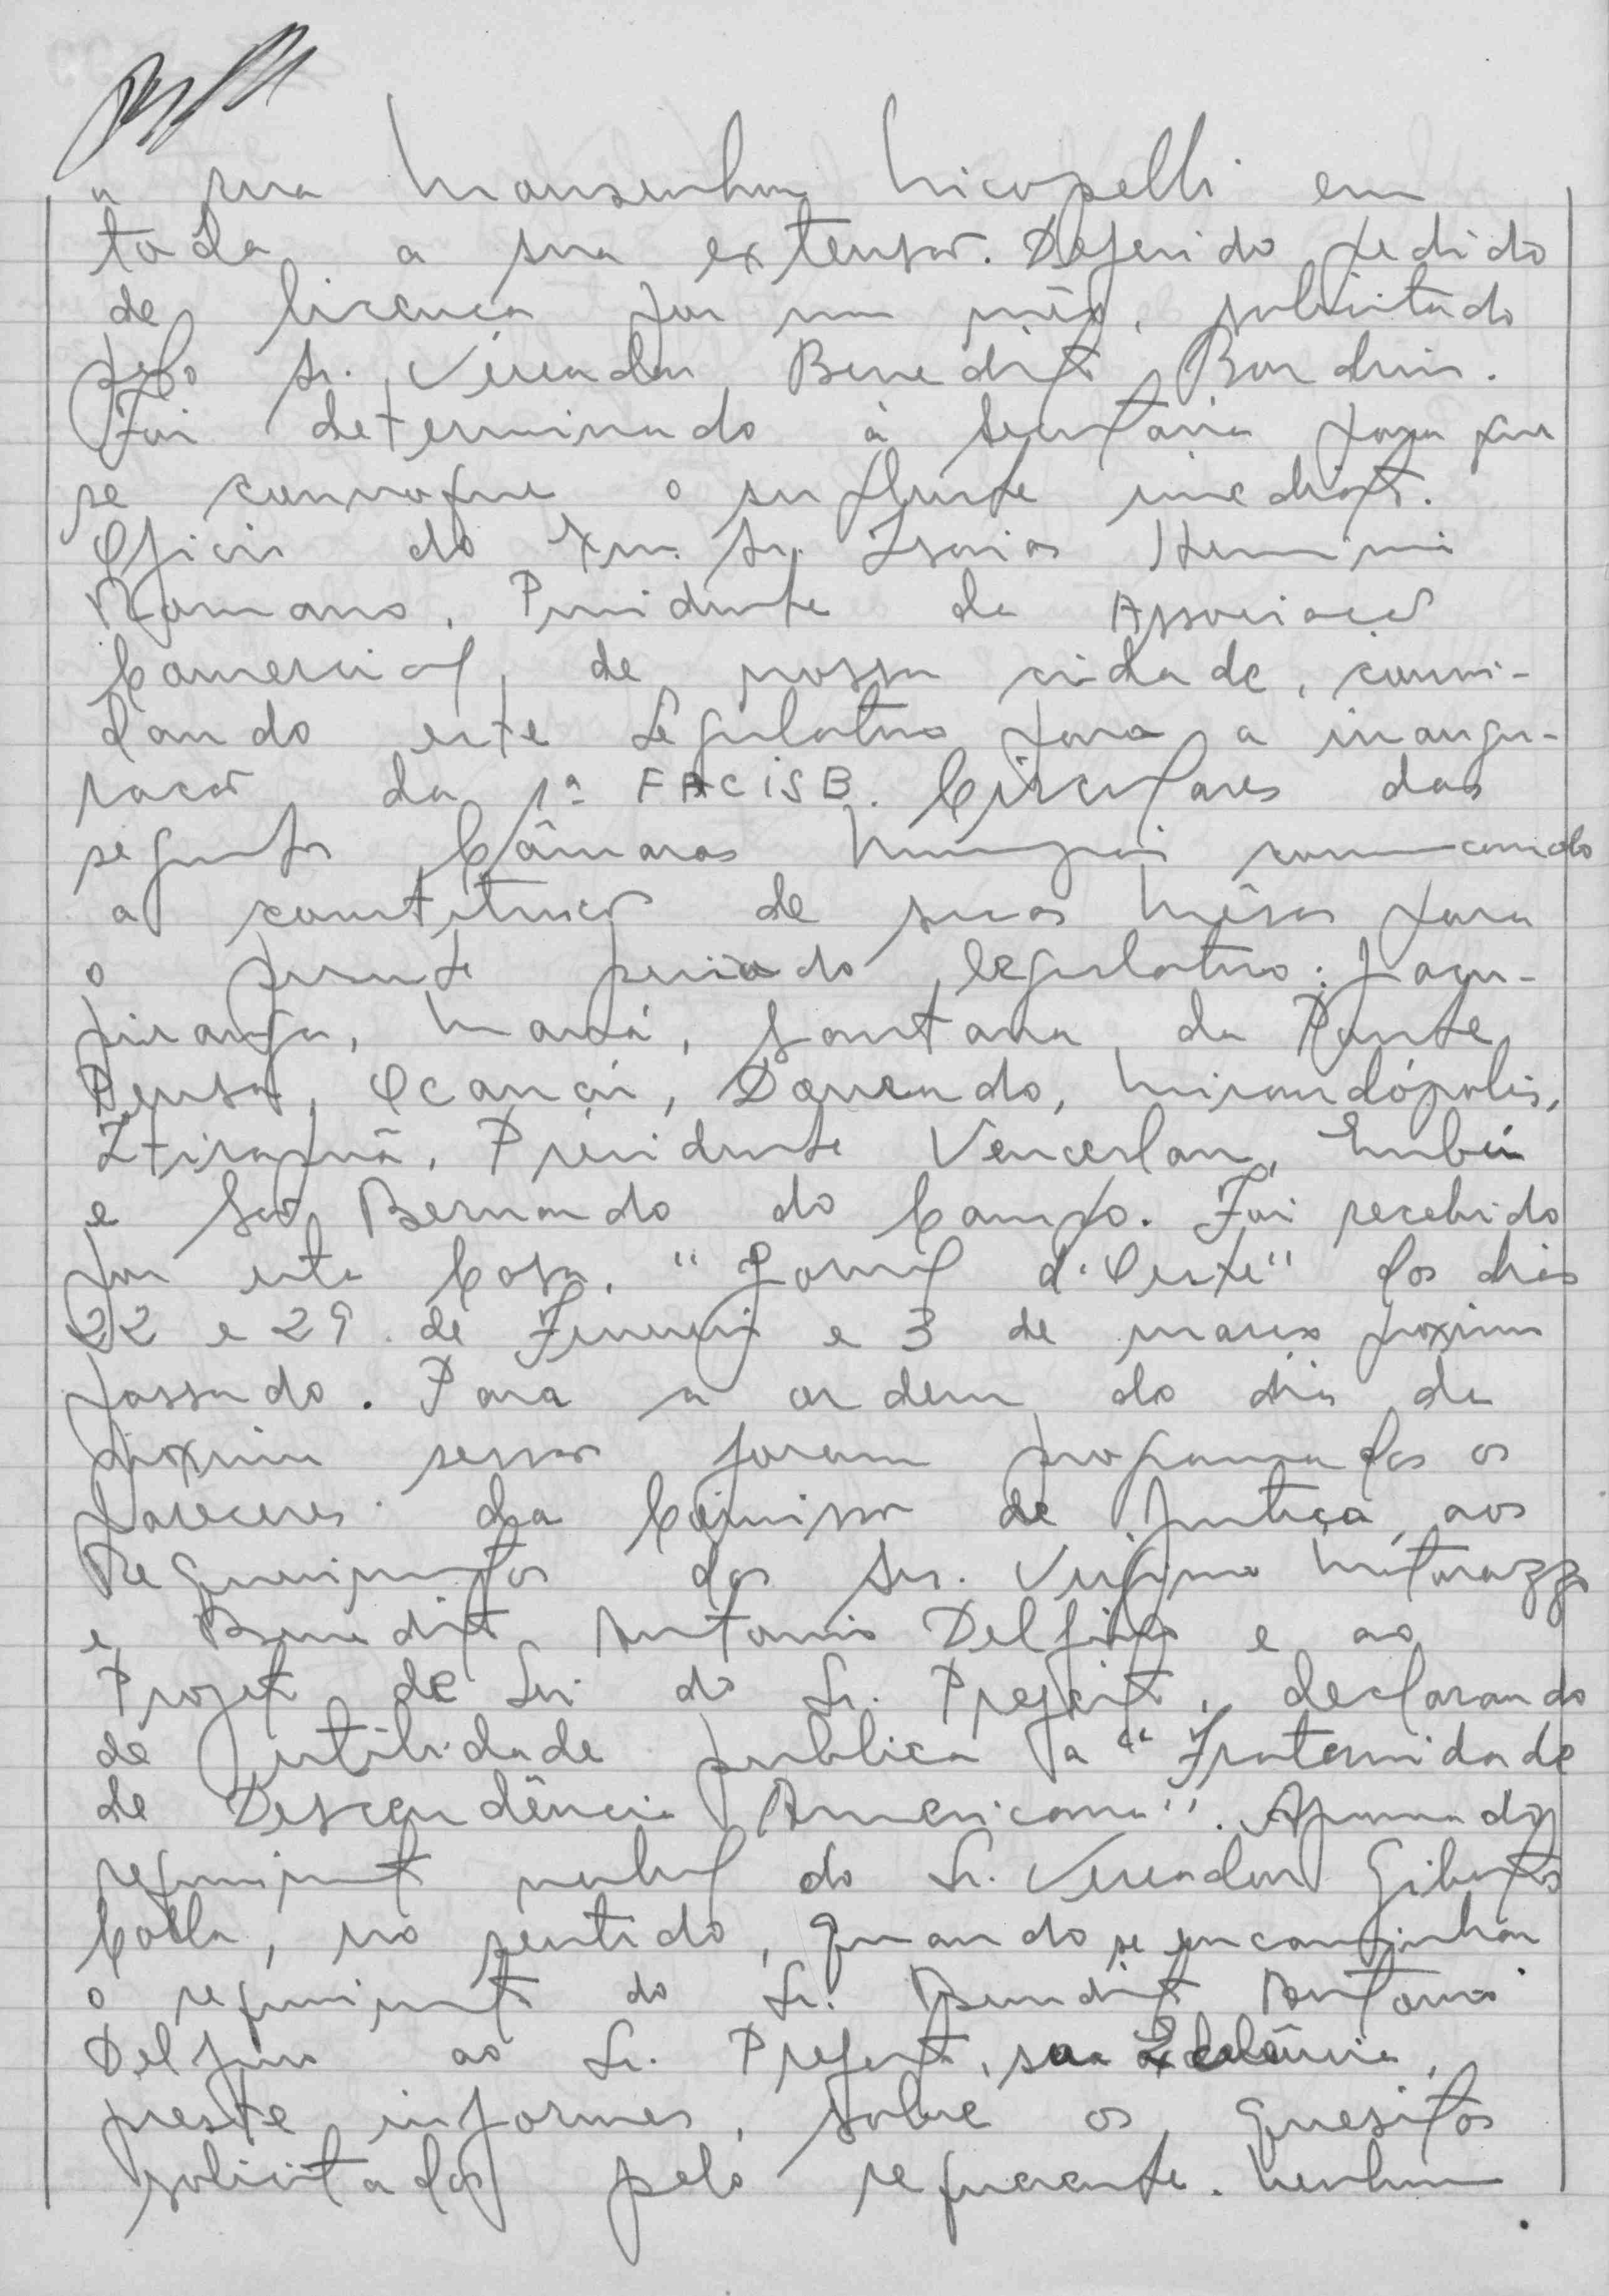 a rua Monsenhor Nicopelli em
toda a sua extensão. Deferido pedido
de licença por um mês, solicitado
pelo Sr. Vereador Benedito Bordini.
Foi determinado à secretaria para que
se convoque o suplente imediato.
Ofício do Exmo. Sr. Isaias Hermínio
Romano, Presidente da Associação
Comercial, de nossa cidade, convi-
dando este Legislativo para a inaugu-
ração da 1ª FACISB. Circulares das
seguintes Câmaras Municipais comunicando
a constituição de suas mêsas para
o presente periodo legislativo: Jacu-
piranga, Mauá, Santana da Ponte
Pensa, Ocauçú, Dourado, Mirandópolis,
Itirapuã, Presidente Venceslau, Embú
e São Bernardo do Campo. Foi recebido
por esta Casa, "Jornal d'Oeste" dos dias
22 e 29 de Fevereiro e 3 de março proximo
passado. Para a ordem do dia da
próxima sessão foram programados os
pareceres da Comissão de Justiça, aos
Requerimentos dos Srs. Virginio Matarazzo
e Benedito Antonio Delfino e ao
Projeto de Lei do Sr. Prefeito, declarando
de utilidade publica a "Fraternidade
de Descendência Americana". Aprovado
requerimento verbal do Sr. Vereador Gilberto
Colla, no sentido, quando se encaminhar
o requerimento do Sr. Benedito Antonio
Delfino ao Sr. Prefeito, sua Excelência,
preste informes, sobre os quesitos
solicitados pelo requerente. Nenhum